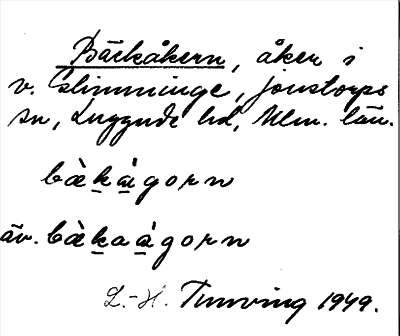 Bäckåkern, åker i
v. Slimminge, Jonstorps
sn, Luggude hd, Mlm. län.
bàkágorn
äv. bàkaágorn
L.-H. Tunving 1949.